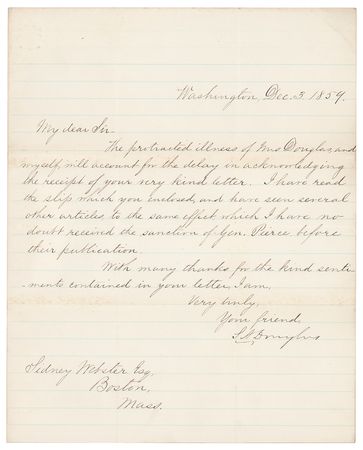 Washington, Dec. 3. 1859.
My dear Sir.
The protracted illness of Mrs Douglas, and
myself, will account for the delay in acknowledging
the receipt of your very kind letter. I have read
the slip which you enclosed, and have seen several
other articles to the same effect which I have no
doubt received the sanction of Gen. Pierce, before
their publication.
With many thanks for the kind senti
-ments contained in your letter, I am,
Very truly,
Your friend,
S. A. Douglas
Sidney Webster Esq.
Boston,
Mass.